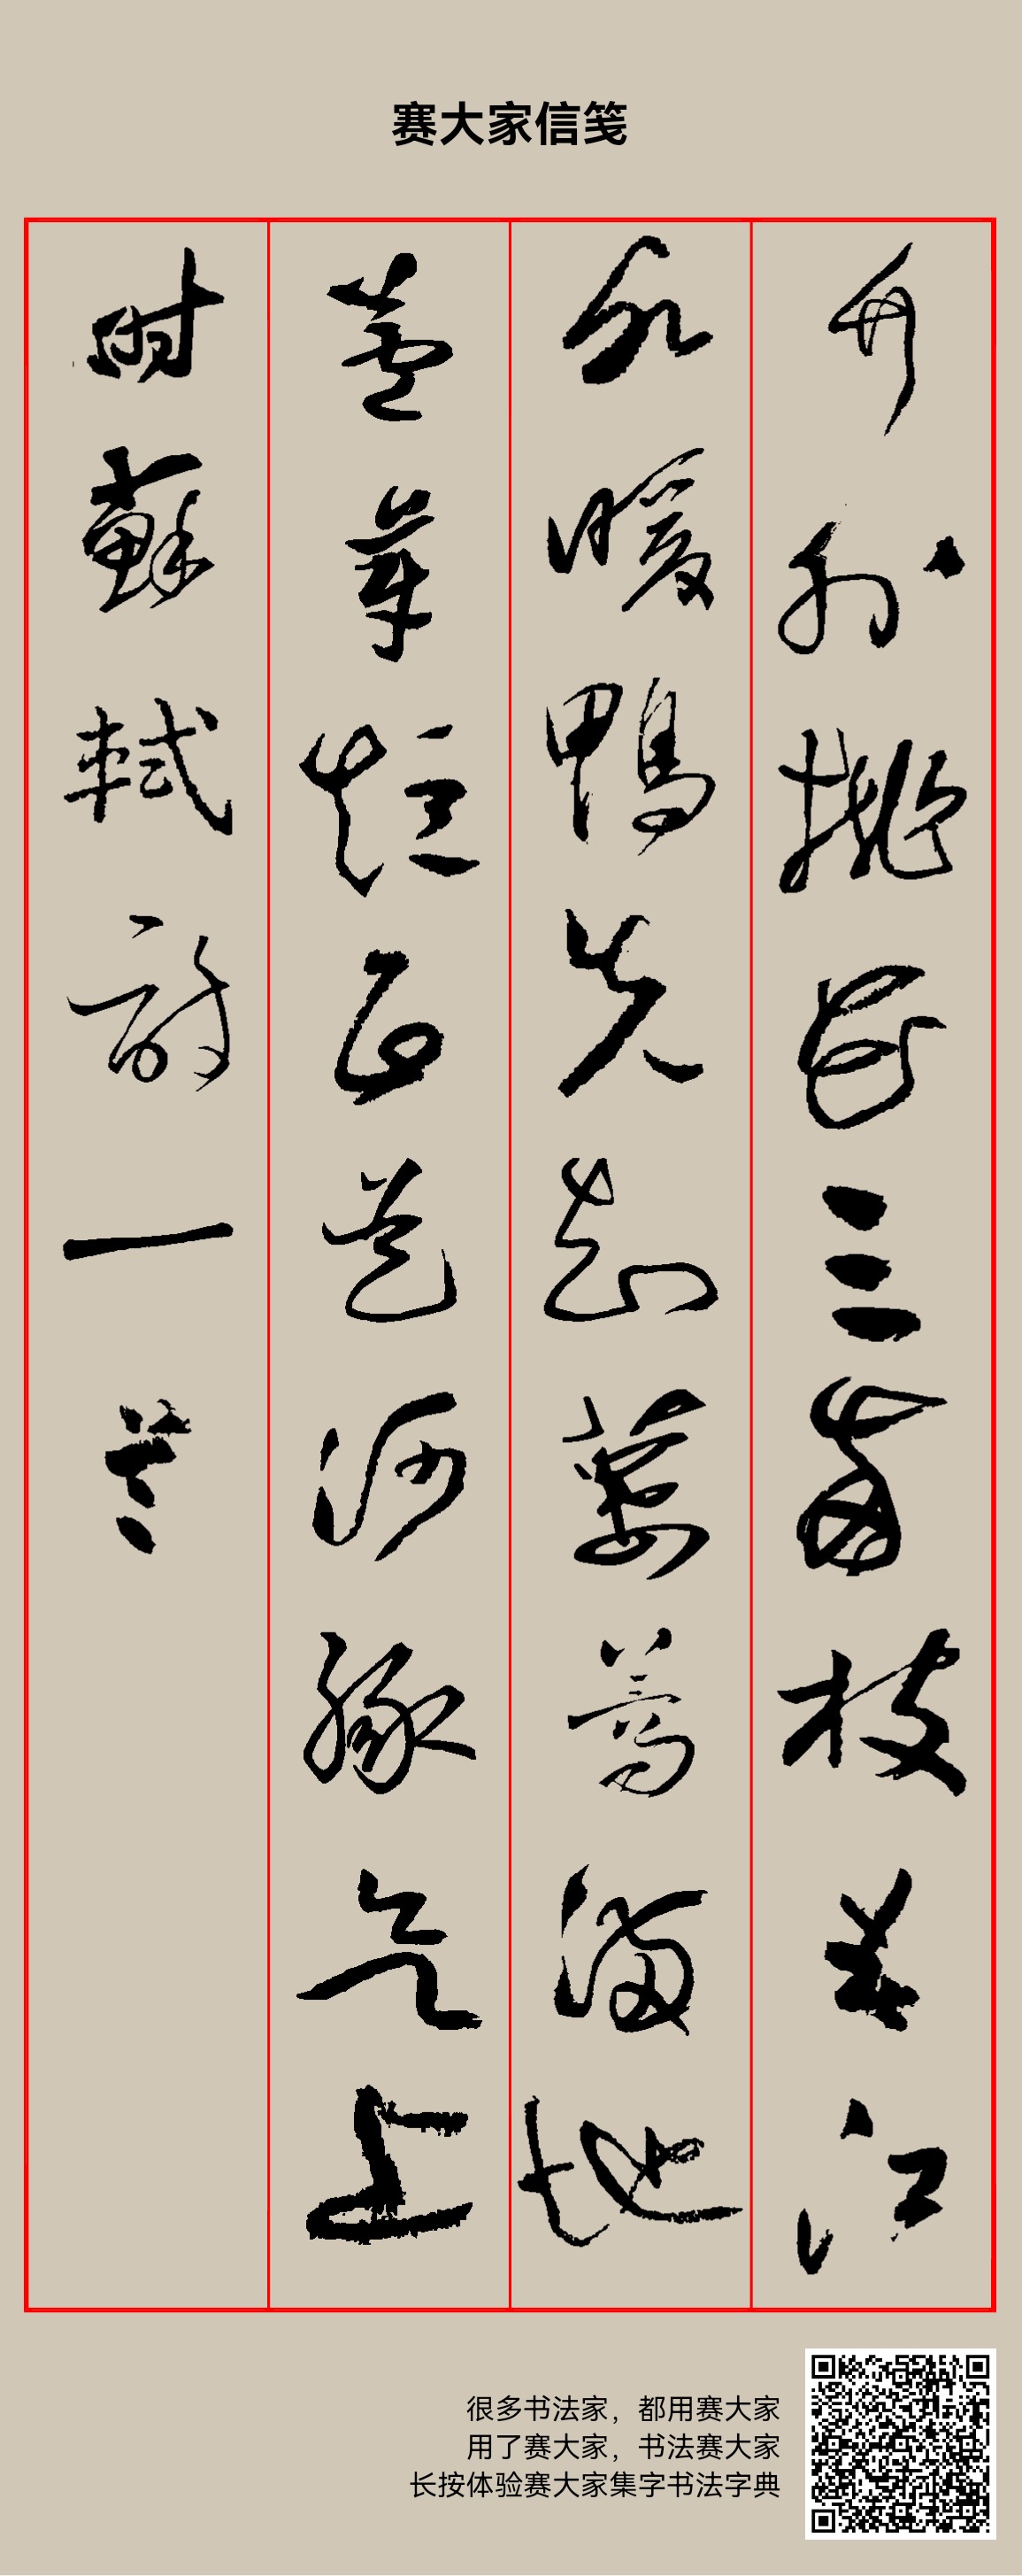 赛大家信笺
竹外桃花三兩枝春江
水暖鴨先知蔞蒿滿地
蘆芽短正是河豚欲上
時蘇軾詩一首
很多书法家，都用赛大家
用了赛大家，书法赛大家
长按体验赛大家集字书法字典